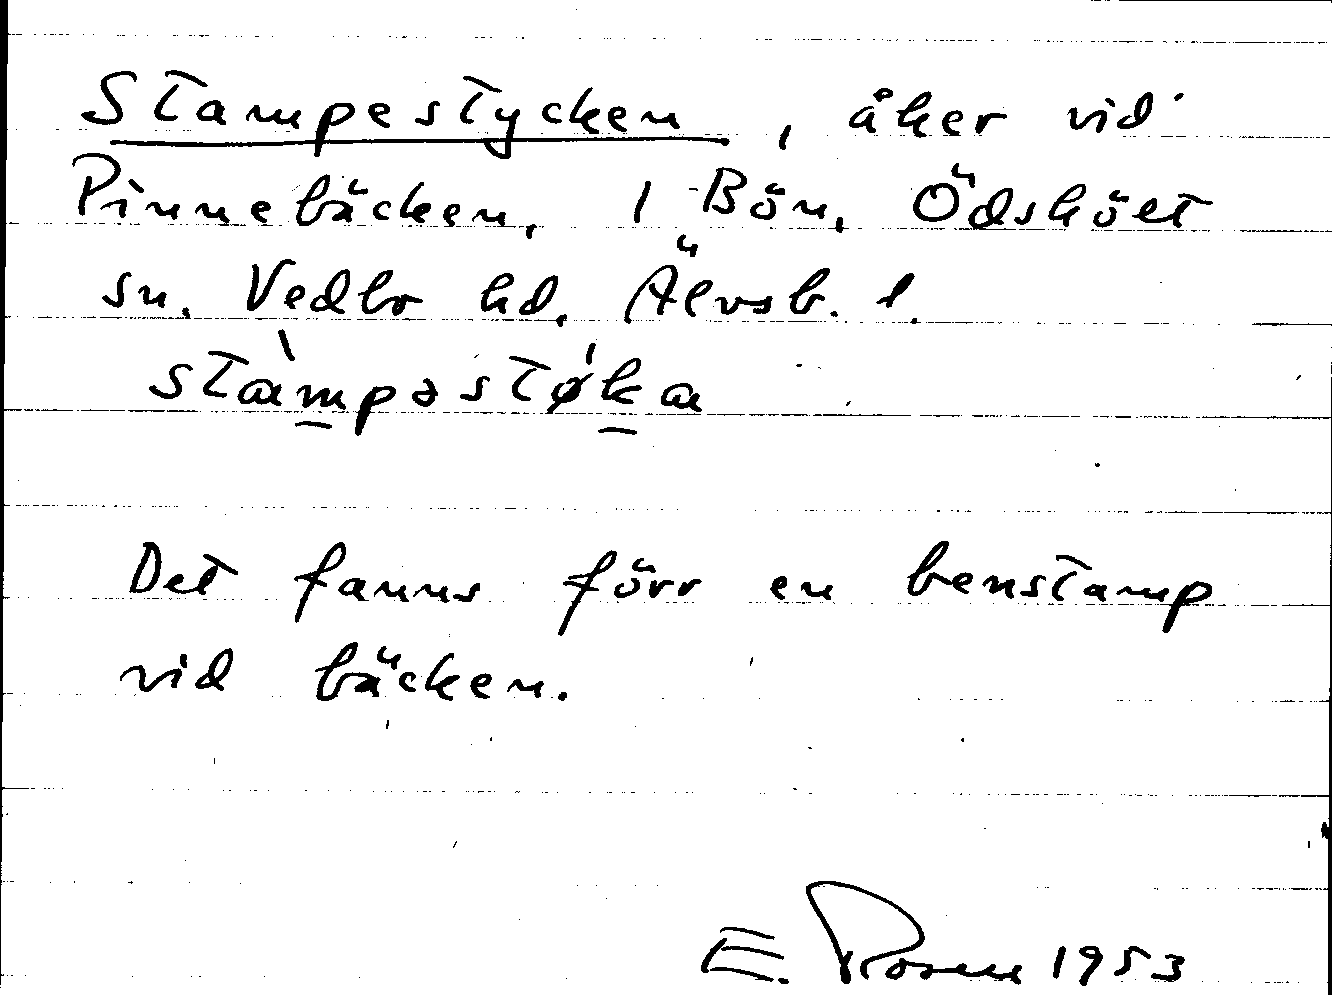 Stampestycken, åker vid
Pinnebäcken, 1 Bön, Ödskölt
sn. Vedbo hd. Älvsb. l.
stàmpəstǿka
Det fanns förr en benstamp
vid bäcken.
E. Rosen 1953